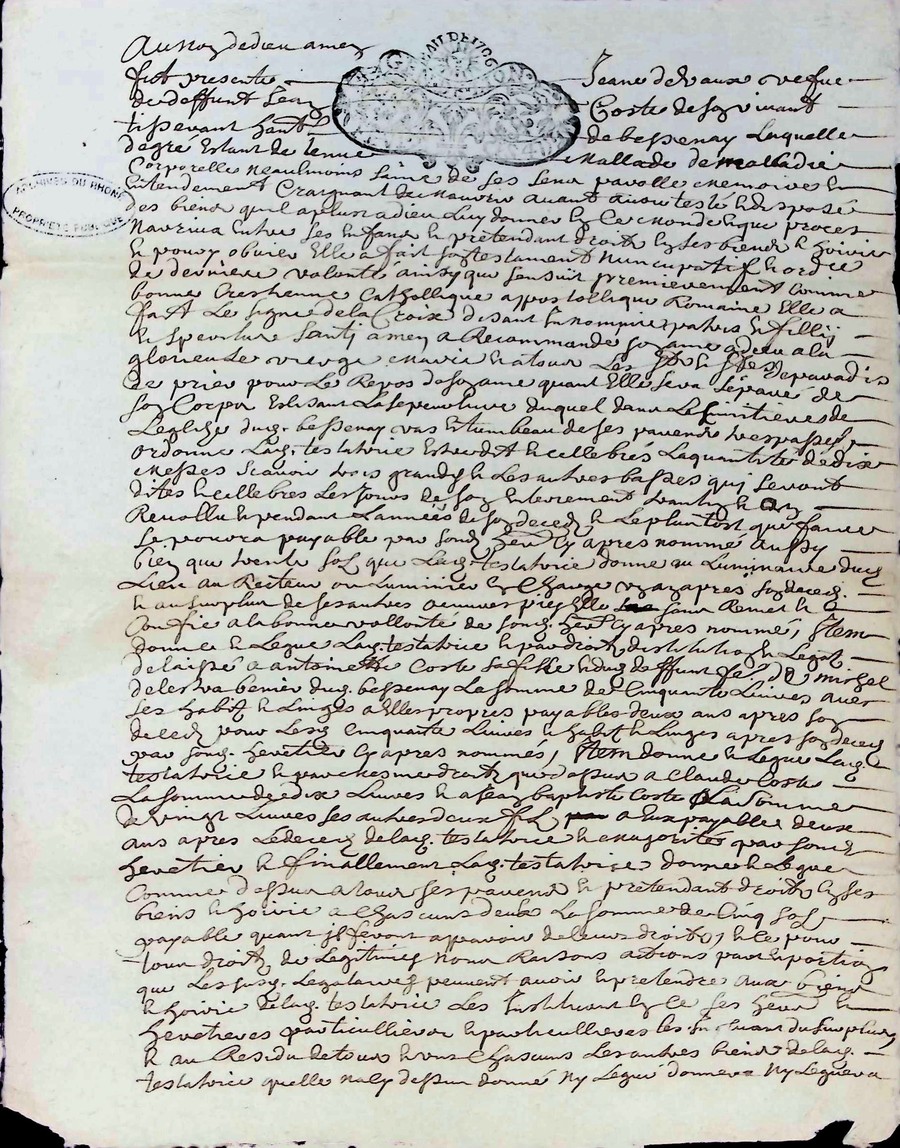 Au nom de dieu amen
fust presente Jeane devaux vefve
de deffunt Jean Coste de son vivant
tisserant habt de bessenay laquelle
degré Estant detenue mallade de malladie
Corporelle neaulmoins saine de ses sens parolle memoire et
Entendement Craignant de mourir avant avoir testé et disposé
des biens quil a plus a dieu luy donner En Ce monde et que proces
narriva Entre ses Enfans et pretendant droits En ses biens et hoirie
et pour y obvier Elle a fait son testament nuncupatif et ordre
de derniere volonte ainsy que sensuit premierement Comme
bonne Crestienne Catholique appostollique Romaine Elle a
fait Le signe de la Croix disant In nomine patris et fillij
et spiritus Santi amen a Recommande son ame a dieu a la
glorieuse vierge marie et a tous Les Sts et Stes de paradis
de prier pour Le Repos de son ame quant Elle sera séparé de
son Corps Eslisant La sepeulture duquel dans Le simitiere de
Leglize dud. bessenay vas et tumbeau de ses parents trespassés
ordonne Lad. testatrice Estre dit et cellebrés La quantité de dix
messes scavoir trois grandes et Les autres basses qui seront
dites et cellebrés Les Jours de son Enterrement
Revollu et pendant L'année de son deced et Le plus tost que faire
se poura payable par sond. hers Cy apres nommé aussy
bien que trente sols que Lad. testatrice donne au Luminaire dud.
Lieu au Recteur ou Luminier En Charge apres son deced.
et au surplus de ses autres oeuvres pies Elle sen Remet et
Confie a la bonne vollonte de sond. hers Cy apres nommé, Item
donne et Legue Lad. testatrice et par droit dinstitution et Legat
delaisse a antoinette Coste sa fille et dud. deffunt fe. de michel
delestra benier dud. bessenay La somme de Cinquante Livres avec
ses habits et Linges a Elle propres payables deux ans apres son
deced pour Lesd. Cinquante Livres et habits et Linges apres son deced
par sond. heretier Cy apres nommés, Item donne et Legue Lad.
testatrice et par mesme droits que dessus a Claude Coste
La somme de dix Livres et a Jean baptiste Coste La somme
de vingt Livres ses autres deux fils a Eux payables deux
ans apres Le deced de lad. testatrice et majorités par sond.
heretier et finallement Lad. testatrice donne et Legue
Comme dessus a tous ses parens et pretendant droits En ses
biens et hoirie a Chascuns deux La somme de Cinq sols
payable quant ils feront apparoir de leurs droits, et Ce pour
tous droits de Legitimes noms Raisons actions part et portion
que Les susd. Legataires peuvent avoir et pretendre aux biens
et hoirie de lad. testatrice Les Instituant En Ce ses hers et
heretieres particulliers et particullieres Les Excluant du surplus
et au Residu de tous et uns Chascuns Les autres biens de lad.
testatrice quelle na cy dessus donné Ny Legué donnera Ny Leguera
ARCHIVES DU RHONE
PROPRIETE PUBLIQUE